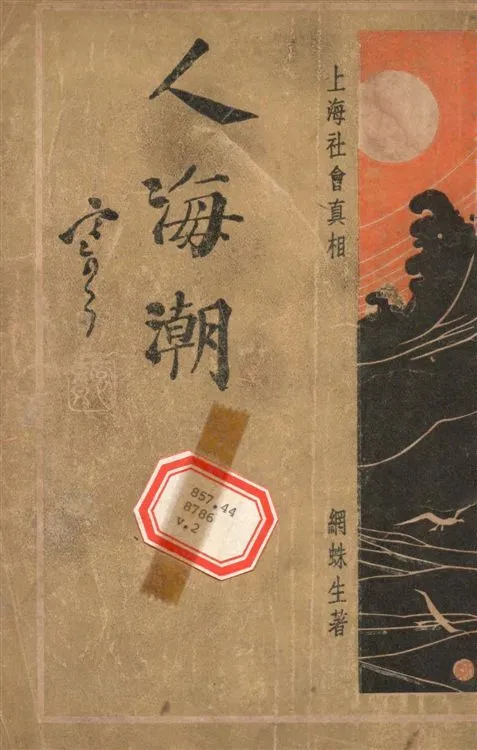 上海社會真相
人海潮
網蛛生著
857.44
8786
v.2